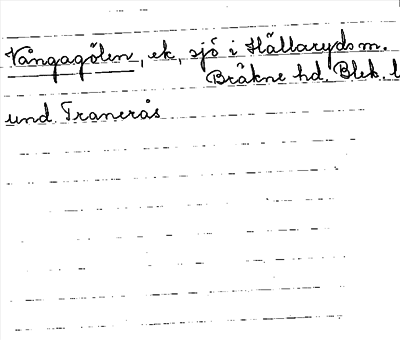 Vångagölen, ek, sjö i Hällaryds m.
Bräkne hd. Blek. l
und Tranerås